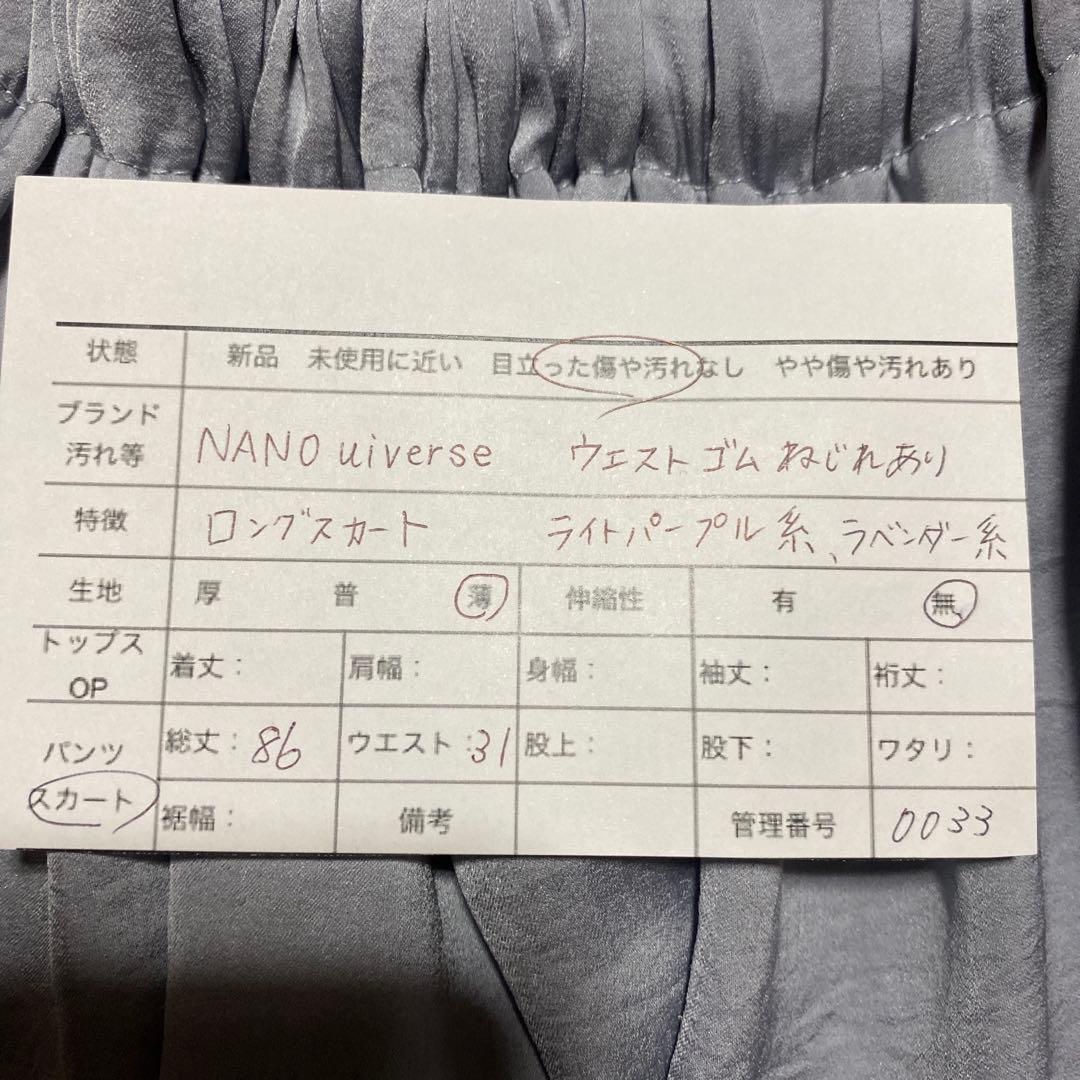 状態 新品 未使用に近い 目立った傷や汚れなし やや傷や汚れあり
ブランド
汚れ等 NANO uiverse ウエストゴムねじれあり
特徴 ロングスカート ライトパープル系、ラベンダー系
生地 厚 普 薄 伸縮性 有 無
トップス
OP 着丈: 肩幅: 身幅: 袖丈: 裄丈:
パンツ 総丈:86 ウエスト:31 股上: 股下: ワタリ:
スカート 裾幅: 備考 管理番号 0033